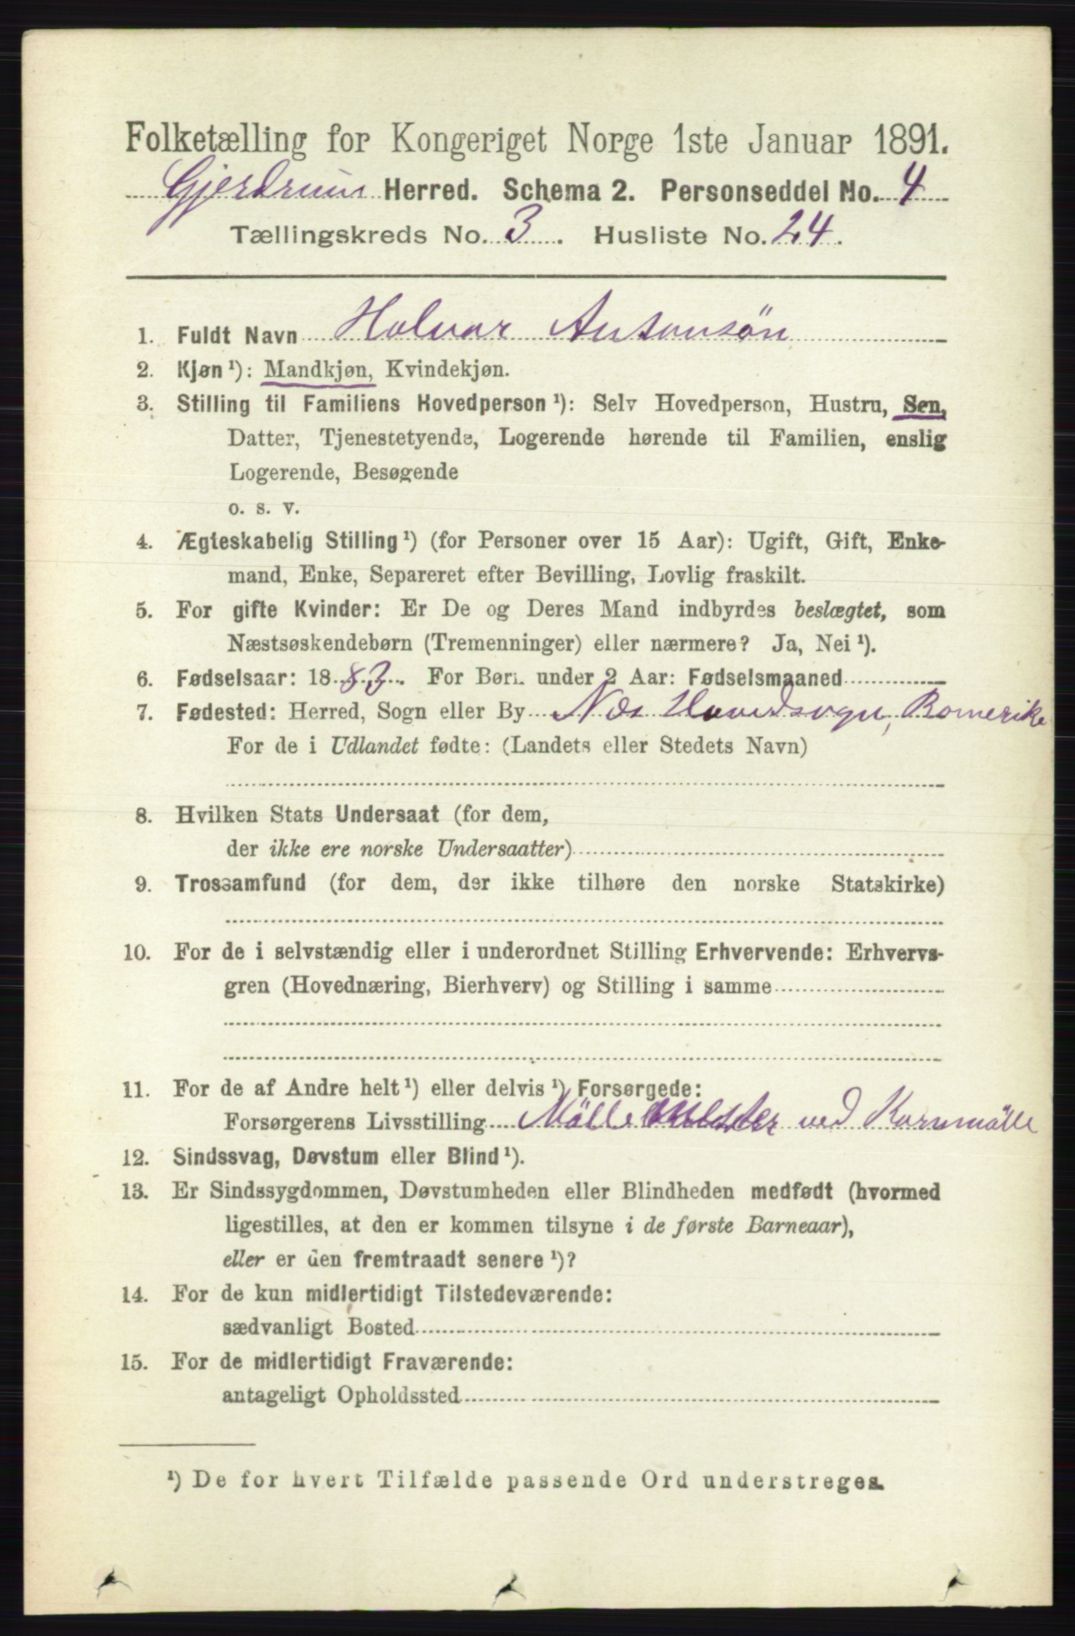 Folketælling for Kongeriget Norge 1ste Januar 1891.
Gjerdrum Herred. Schema 2. Personseddel No. 4
Tællingskreds No. 3. Husliste No. 24.
1. Fuldt Navn Halvor Antonsøn
2. Kjøn ¹): Mandkjøn, Kvindekjøn.
3. Stilling til Familiens Hovedperson ¹): Selv Hovedperson, Hustru, Søn,
Datter, Tjenestetyende, Logerende hørende til Familien, enslig
Logerende, Besøgende
o. s. v.
4. Ægteskabelig Stilling ¹) (for Personer over 15 Aar): Ugift, Gift, Enke-
mand, Enke, Separeret efter Bevilling, Lovlig fraskilt.
5. For gifte Kvinder: Er De og Deres Mand indbyrdes beslægtet, som
Næstsøskendebørn (Tremenninger) eller nærmere? Ja, Nei ¹).
6. Fødselsaar: 1883. For Børn under 2 Aar: Fødselsmaaned
7. Fødested: Herred, Sogn eller By Næs Hovedsogn, Romerike
For de i Udlandet fødte: (Landets eller Stedets Navn)
8. Hvilken Stats Undersaat (for dem,
der ikke ere norske Undersaatter)
9. Trossamfund (for dem, der ikke tilhøre den norske Statskirke)
10. For de i selvstændig eller i underordnet Stilling Erhvervende: Erhvervs-
gren (Hovednæring, Bierhverv) og Stilling i samme
11. For de af Andre helt ¹) eller delvis ¹) Forsørgede:
Forsørgerens Livsstilling Möllemester ved Kornmölle
12. Sindssvag, Døvstum eller Blind ¹).
13. Er Sindssygdommen, Døvstumheden eller Blindheden medfødt (hvormed
ligestilles, at den er kommen tilsyne i de første Barneaar),
eller er den fremtraadt senere ¹)?
14. For de kun midlertidigt Tilstedeværende:
sædvanligt Bosted
15. For de midlertidigt Fraværende:
antageligt Opholdssted
¹) De for hvert Tilfælde passende Ord understreges.